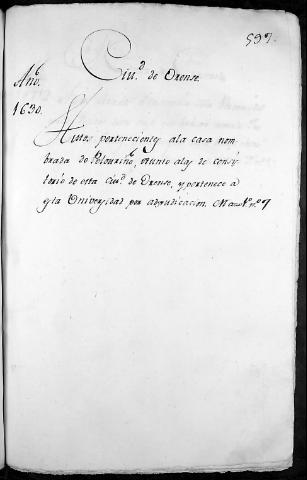 597.
Ciu.d de Orense.
Año.
1630.
Autos pertenecientes a la casa nom-
brada do Pelouriño, y junto a las de consis-
torio de esta ciu.d de Orense, y pertenece a
esta Universidad por adjudicacion. Mazo 1º nº 7